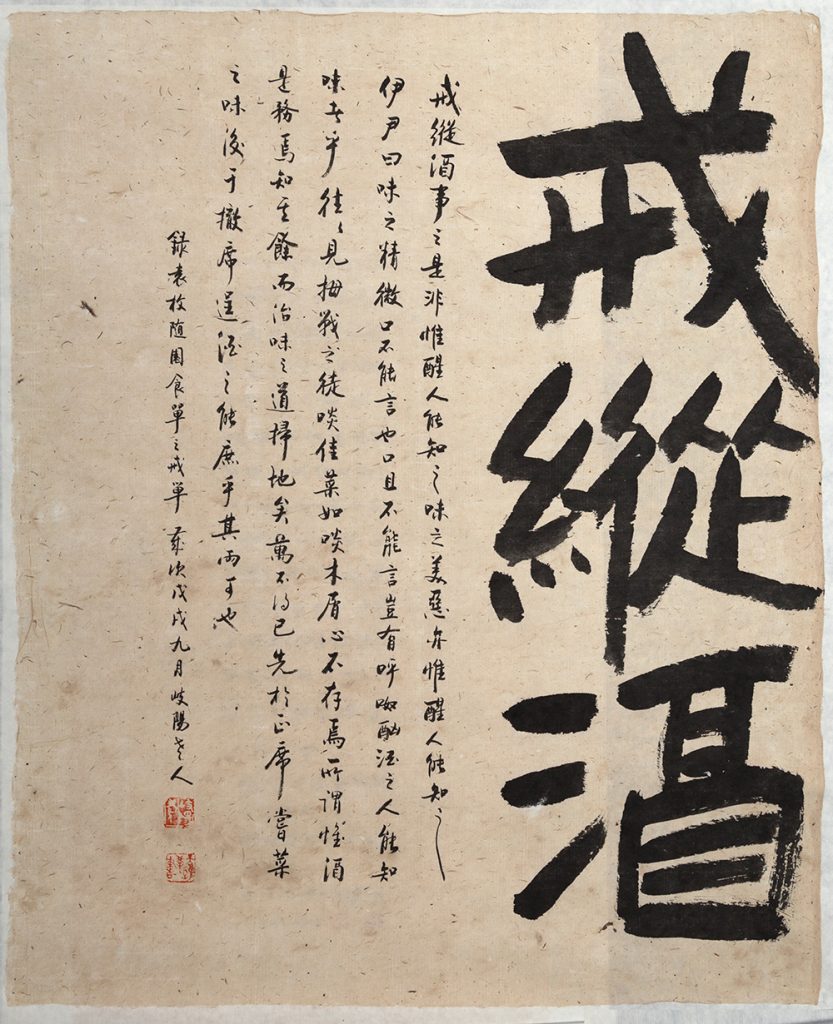 戒縱酒
戒縱酒事之是非惟醒人能知之味之美惡亦惟醒人能知之
伊尹曰味之精微口不能言也口且不能言豈有呼呶酗酒之人能知
味者乎往々見拇戰之徒啖佳菜如啖木屑心不存焉所謂惟酒
是務焉知其餘而治味之道掃地矣萬不得已先於正席嘗菜
之味後于撤席逞酒之能庶乎其兩可也
錄袁枚随園食單之戒単 歲次戊戌九月岐陽老人